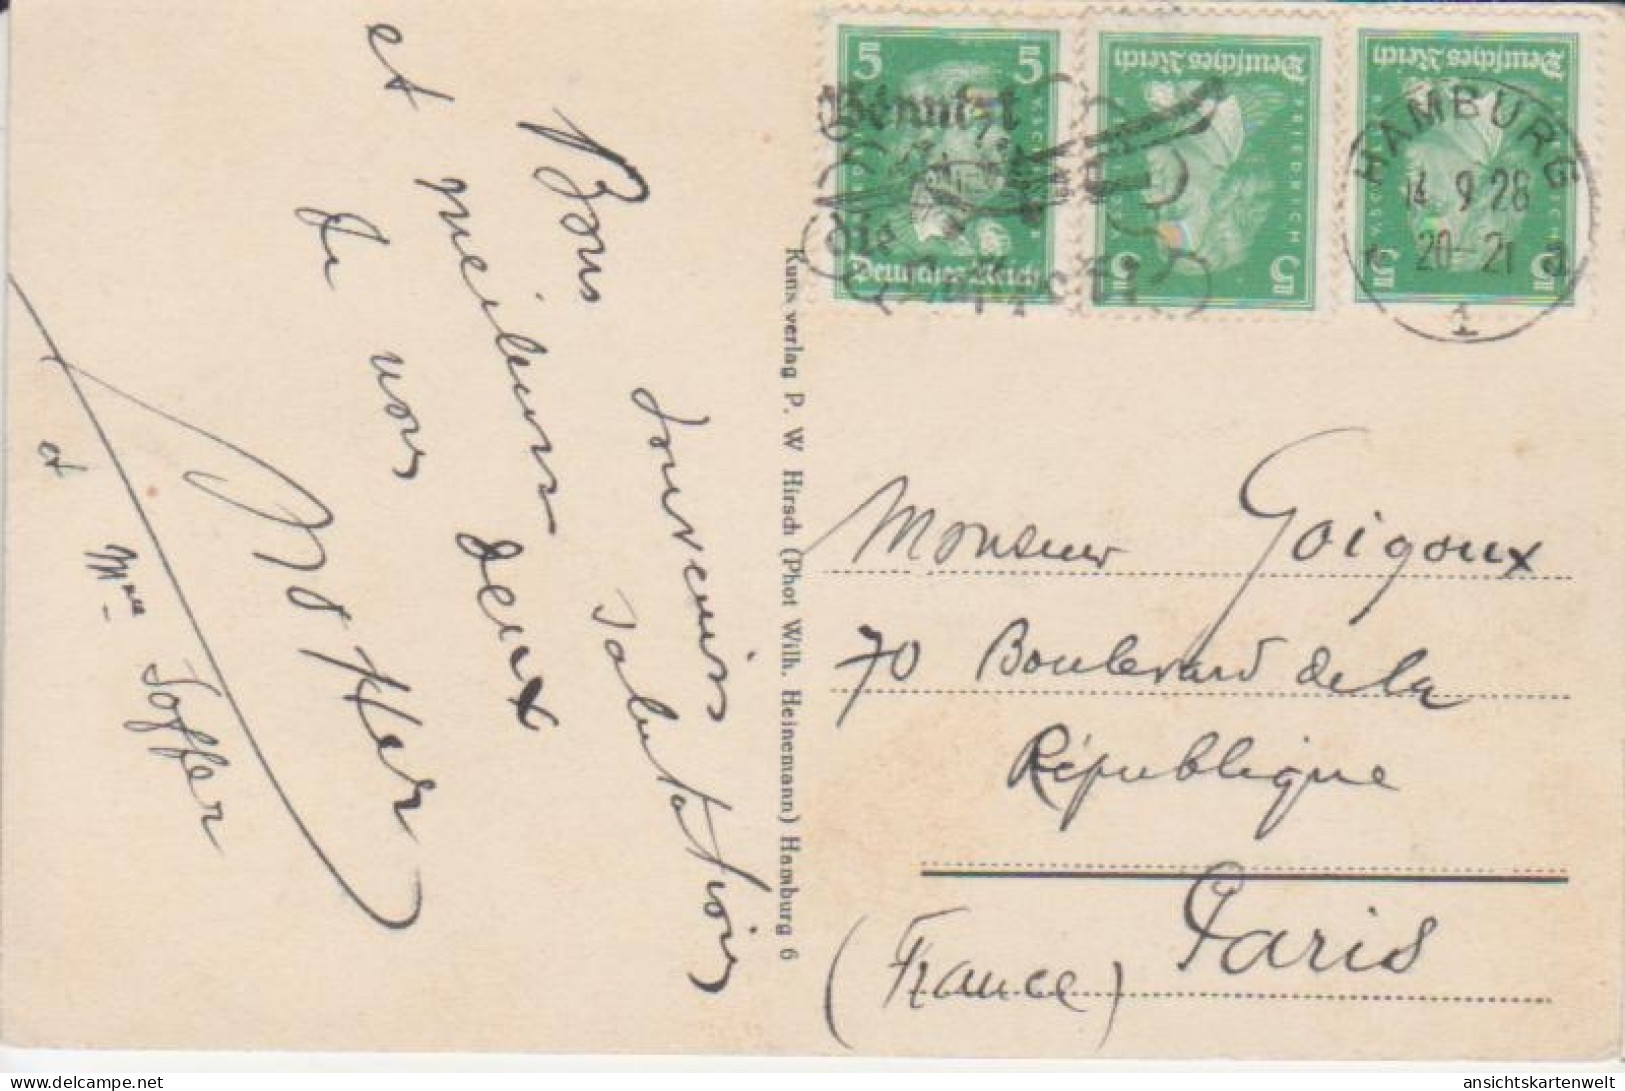 Bons souvenirs
et meilleurs salutations
de nous deux
et Mme Toffer
Kunstverlag P. W Hirsch (Phot Wilh. Heinemann) Hamburg 6
5 5
Deutsches Reich
Deutsches Reich
5
FRIEDRICH V. SCHILLER
Deutsches Reich
5
Benutzt
die
HAMBURG
14.9.28
20-21 a
1
Monsieur Goigoux
70 Boulevard de la
République
Paris
(France)
ansichtskartenwelt
© www.delcampe.net / ansichtskartenwelt